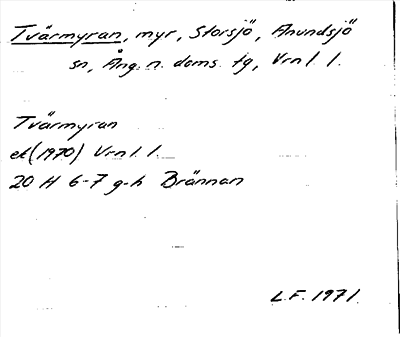 Tvärmyran, myr, Storsjö, Anundsjö
sn, Ång. n. doms. tg, Vrnl l.
Tvärmyran
ek (1970) Vrnl. l.
20 H 6-7 g-h Brännan
L.F. 1971